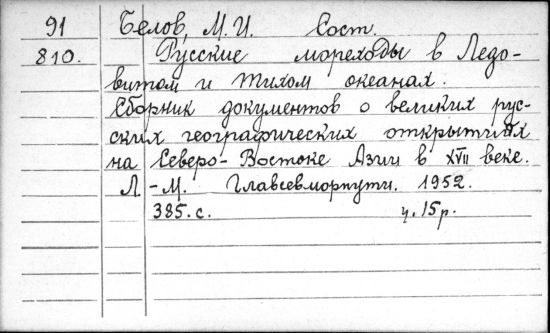 91 Белов, М. И. Сост.
810. Русские мореходы в Ледо-
витом и Тихом океанах.
Сборник документов о великих рус-
ских географических открытиях
на Северо-Востоке Азии в XVII веке.
Л.-М. Главсевморпути. 1952.
385.с. ц. 15р.